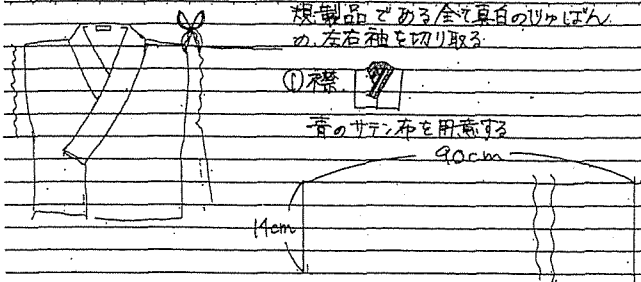 規製品である全て真白のじゅばん
の、左右袖を切り取る
①襟
青のサテン布を用意する
90cm
14cm